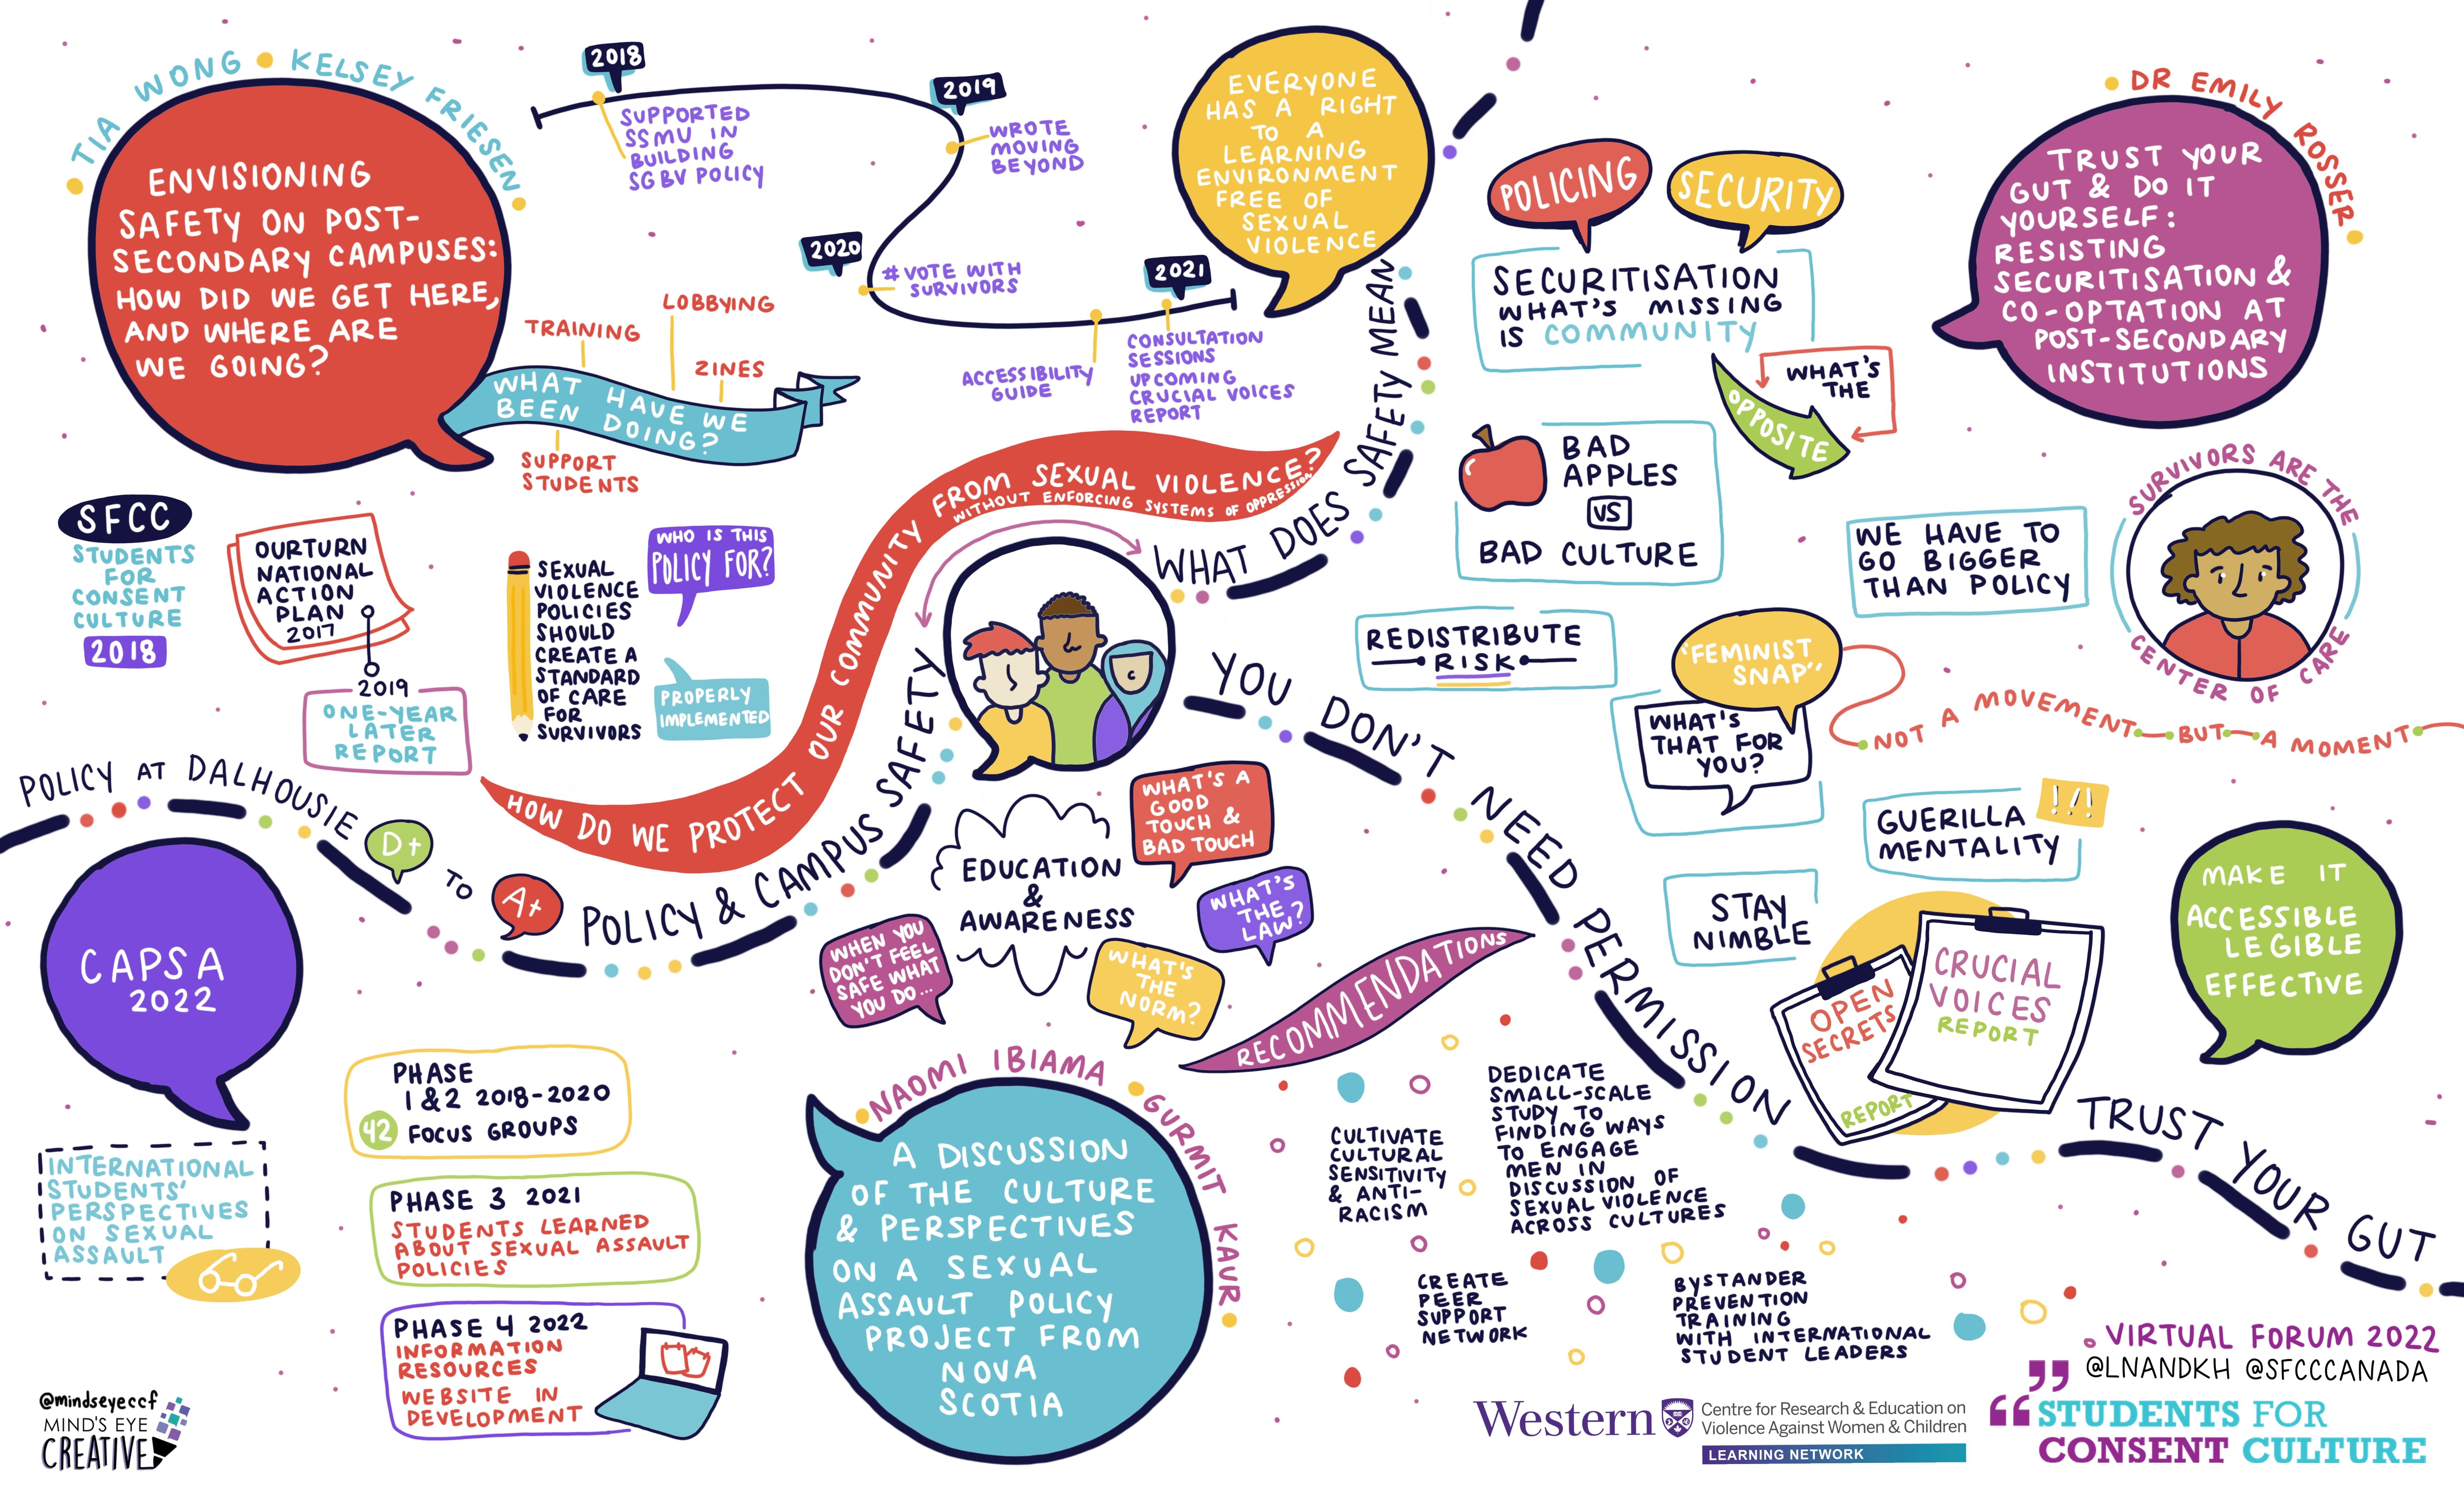 TIA WONG • KELSEY FRIESEN
ENVISIONING
SAFETY ON POST-
SECONDARY CAMPUSES:
HOW DID WE GET HERE,
AND WHERE ARE
WE GOING?
WHAT HAVE WE
BEEN DOING?
TRAINING
LOBBYING
ZINES
SUPPORT
STUDENTS
2018
SUPPORTED
SSMU IN
BUILDING
SGBV POLICY
2019
WROTE
MOVING
BEYOND
2020
#VOTE WITH
SURVIVORS
ACCESSIBILITY
GUIDE
2021
CONSULTATION
SESSIONS
UPCOMING
CRUCIAL VOICES
REPORT
EVERYONE
HAS A RIGHT
TO A
LEARNING
ENVIRONMENT
FREE OF
SEXUAL
VIOLENCE
SFCC
STUDENTS
FOR
CONSENT
CULTURE
2018
OURTURN
NATIONAL
ACTION
PLAN
2017
2019
ONE-YEAR
LATER
REPORT
SEXUAL
VIOLENCE
POLICIES
SHOULD
CREATE A
STANDARD
OF CARE
FOR
SURVIVORS
WHO IS THIS
POLICY FOR?
PROPERLY
IMPLEMENTED
HOW DO WE PROTECT OUR COMMUNITY FROM SEXUAL VIOLENCE?
WITHOUT ENFORCING SYSTEMS OF OPPRESSION
POLICY AT DALHOUSIE
D+
TO
A+
POLICY & CAMPUS SAFETY
WHAT DOES SAFETY MEAN
CAPSA
2022
INTERNATIONAL
STUDENTS'
PERSPECTIVES
ON SEXUAL
ASSAULT
PHASE
1&2 2018-2020
42 FOCUS GROUPS
PHASE 3 2021
STUDENTS LEARNED
ABOUT SEXUAL ASSAULT
POLICIES
PHASE 4 2022
INFORMATION
RESOURCES
WEBSITE IN
DEVELOPMENT
EDUCATION
&
AWARENESS
WHAT'S A
GOOD
TOUCH &
BAD TOUCH
WHAT'S
THE
LAW?
WHEN YOU
DON'T FEEL
SAFE WHAT
YOU DO...
WHAT'S
THE
NORM?
NAOMI IBIAMA • GURMIT KAUR
A DISCUSSION
OF THE CULTURE
& PERSPECTIVES
ON A SEXUAL
ASSAULT POLICY
PROJECT FROM
NOVA
SCOTIA
RECOMMENDATIONS
CULTIVATE
CULTURAL
SENSITIVITY
& ANTI-
RACISM
DEDICATE
SMALL-SCALE
STUDY TO
FINDING WAYS
TO ENGAGE
MEN IN
DISCUSSION OF
SEXUAL VIOLENCE
ACROSS CULTURES
CREATE
PEER
SUPPORT
NETWORK
BYSTANDER
PREVENTION
TRAINING
WITH INTERNATIONAL
STUDENT LEADERS
DR EMILY ROSSER
TRUST YOUR
GUT & DO IT
YOURSELF:
RESISTING
SECURITISATION &
CO-OPTATION AT
POST-SECONDARY
INSTITUTIONS
POLICING
SECURITY
SECURITISATION
WHAT'S MISSING
IS COMMUNITY
WHAT'S
THE
OPPOSITE
BAD
APPLES
VS
BAD CULTURE
REDISTRIBUTE
RISK
WE HAVE TO
GO BIGGER
THAN POLICY
SURVIVORS ARE THE
CENTER OF CARE
"FEMINIST
SNAP"
WHAT'S
THAT FOR
YOU?
NOT A MOVEMENT BUT A MOMENT
GUERILLA
MENTALITY
!/!
STAY
NIMBLE
YOU DON'T NEED PERMISSION
OPEN
SECRETS
REPORT
CRUCIAL
VOICES
REPORT
MAKE IT
ACCESSIBLE
LEGIBLE
EFFECTIVE
TRUST YOUR GUT
VIRTUAL FORUM 2022
@LNANDKH @SFCCCANADA
"STUDENTS FOR
CONSENT CULTURE"
Western
Centre for Research & Education on
Violence Against Women & Children
LEARNING NETWORK
@mindseyeccf
MIND'S EYE
CREATIVE